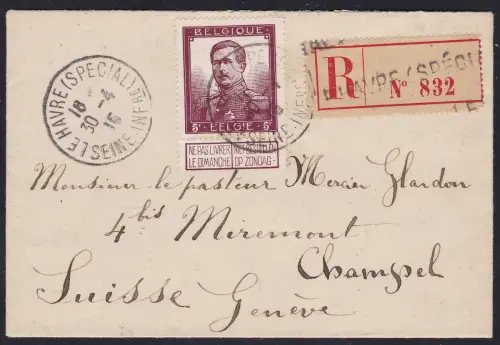 LE HAVRE (SPECIAL)
18
30 -4
16
SEINE INFRE
BELGIQUE
5F 5F
BELGIË
NE PAS LIVRER
LE DIMANCHE
OP ZONDAG-
R
No 832
HAVRE (SPÉCI
Monsieur le pasteur Mercier Glardon
4 bis Miremont
Champel
Suisse Genève